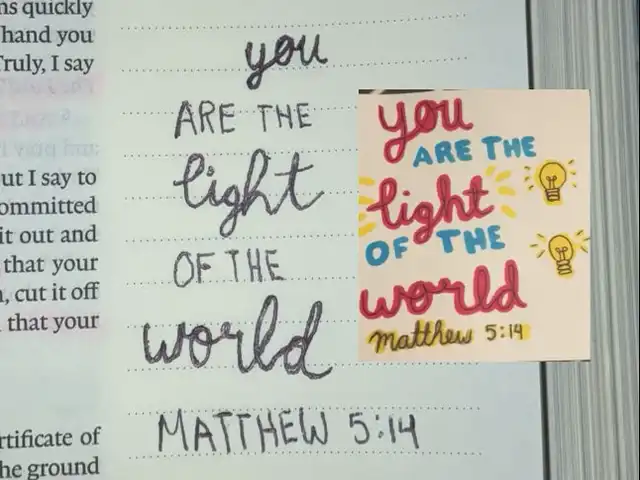 ns quickly
hand you
Truly, I say
ut I say to
ommitted
it out and
that your
, cut it off
that your
rtificate of
he ground
you
ARE THE
light
OF THE
world
MATTHEW 5:14
you
ARE THE
light
OF THE
world
matthew 5:14